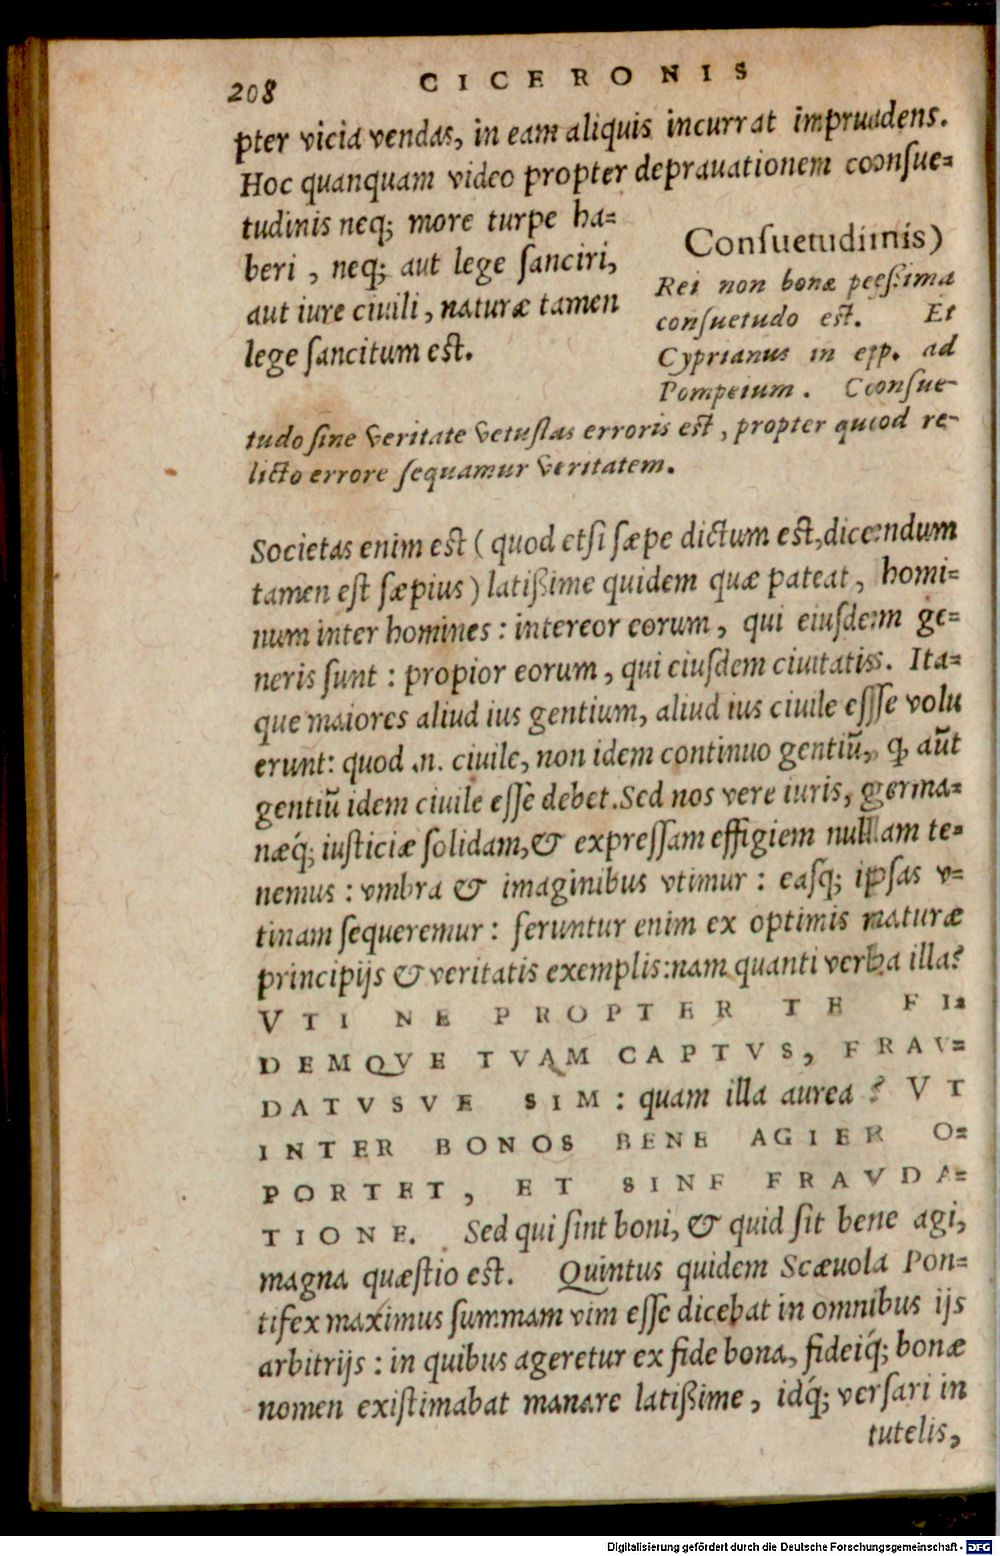 208 CICERONIS
pter vicia vendas, in eam aliquis incurrat imprudens.
Hoc quanquam video propter deprauationem coonſue=
tudinis neq; more turpe ha=
beri, neq; aut lege ſanciri,
aut iure ciuili, naturæ tamen
lege ſancitum eſt.
Conſuetudimis)
Rei non bonæ peſſima
conſuetudo eſt. Et
Cyprianus in epp. ad
Pompeium. Cconſue-
tudo ſine veritate vetuſtas erroris eſt, propter quod re-
licto errore ſequamur veritatem.
Societas enim eſt (quod etſi ſæpe dictum eſt, dicendum
tamen eſt ſæpius) latißime quidem quæ pateat, homi=
num inter homines: intereor eorum, qui eiuſdem ge=
neris ſunt: propior eorum, qui eiuſdem ciuitatis. Ita=
que maiores aliud ius gentium, aliud ius ciuile eſſſe volu
erunt: quod .n. ciuile, non idem continuo gentiũ, q̃ aũt
gentiũ idem ciuile eſſe debet. Sed nos vere iuris, germa=
næq́; iuſticiæ ſolidam, & expreſſam effigiem nullam te=
nemus: vmbra & imaginibus vtimur: eaſq; ipſas v=
tinam ſequeremur: feruntur enim ex optimis naturæ
principijs & veritatis exemplis: nam quanti verba illa?
VTI NE PROPTER TE FI=
DEMQVE TVAM CAPTVS, FRAV=
DATVSVE SIM: quam illa aurea? VT
INTER BONOS BENE AGIER O=
PORTET, ET SINE FRAVDA=
TIONE. Sed qui ſint boni, & quid ſit bene agi,
magna quæſtio eſt. Quintus quidem Scæuola Pon=
tifex maximus ſummam vim eſſe dicebat in omnibus ijs
arbitrijs: in quibus ageretur ex fide bona, fideiq́; bonæ
nomen exiſtimabat manare latißime, idq́; verſari in
tutelis,
Digitalisierung gefördert durch die Deutsche Forschungsgemeinschaft - DFG